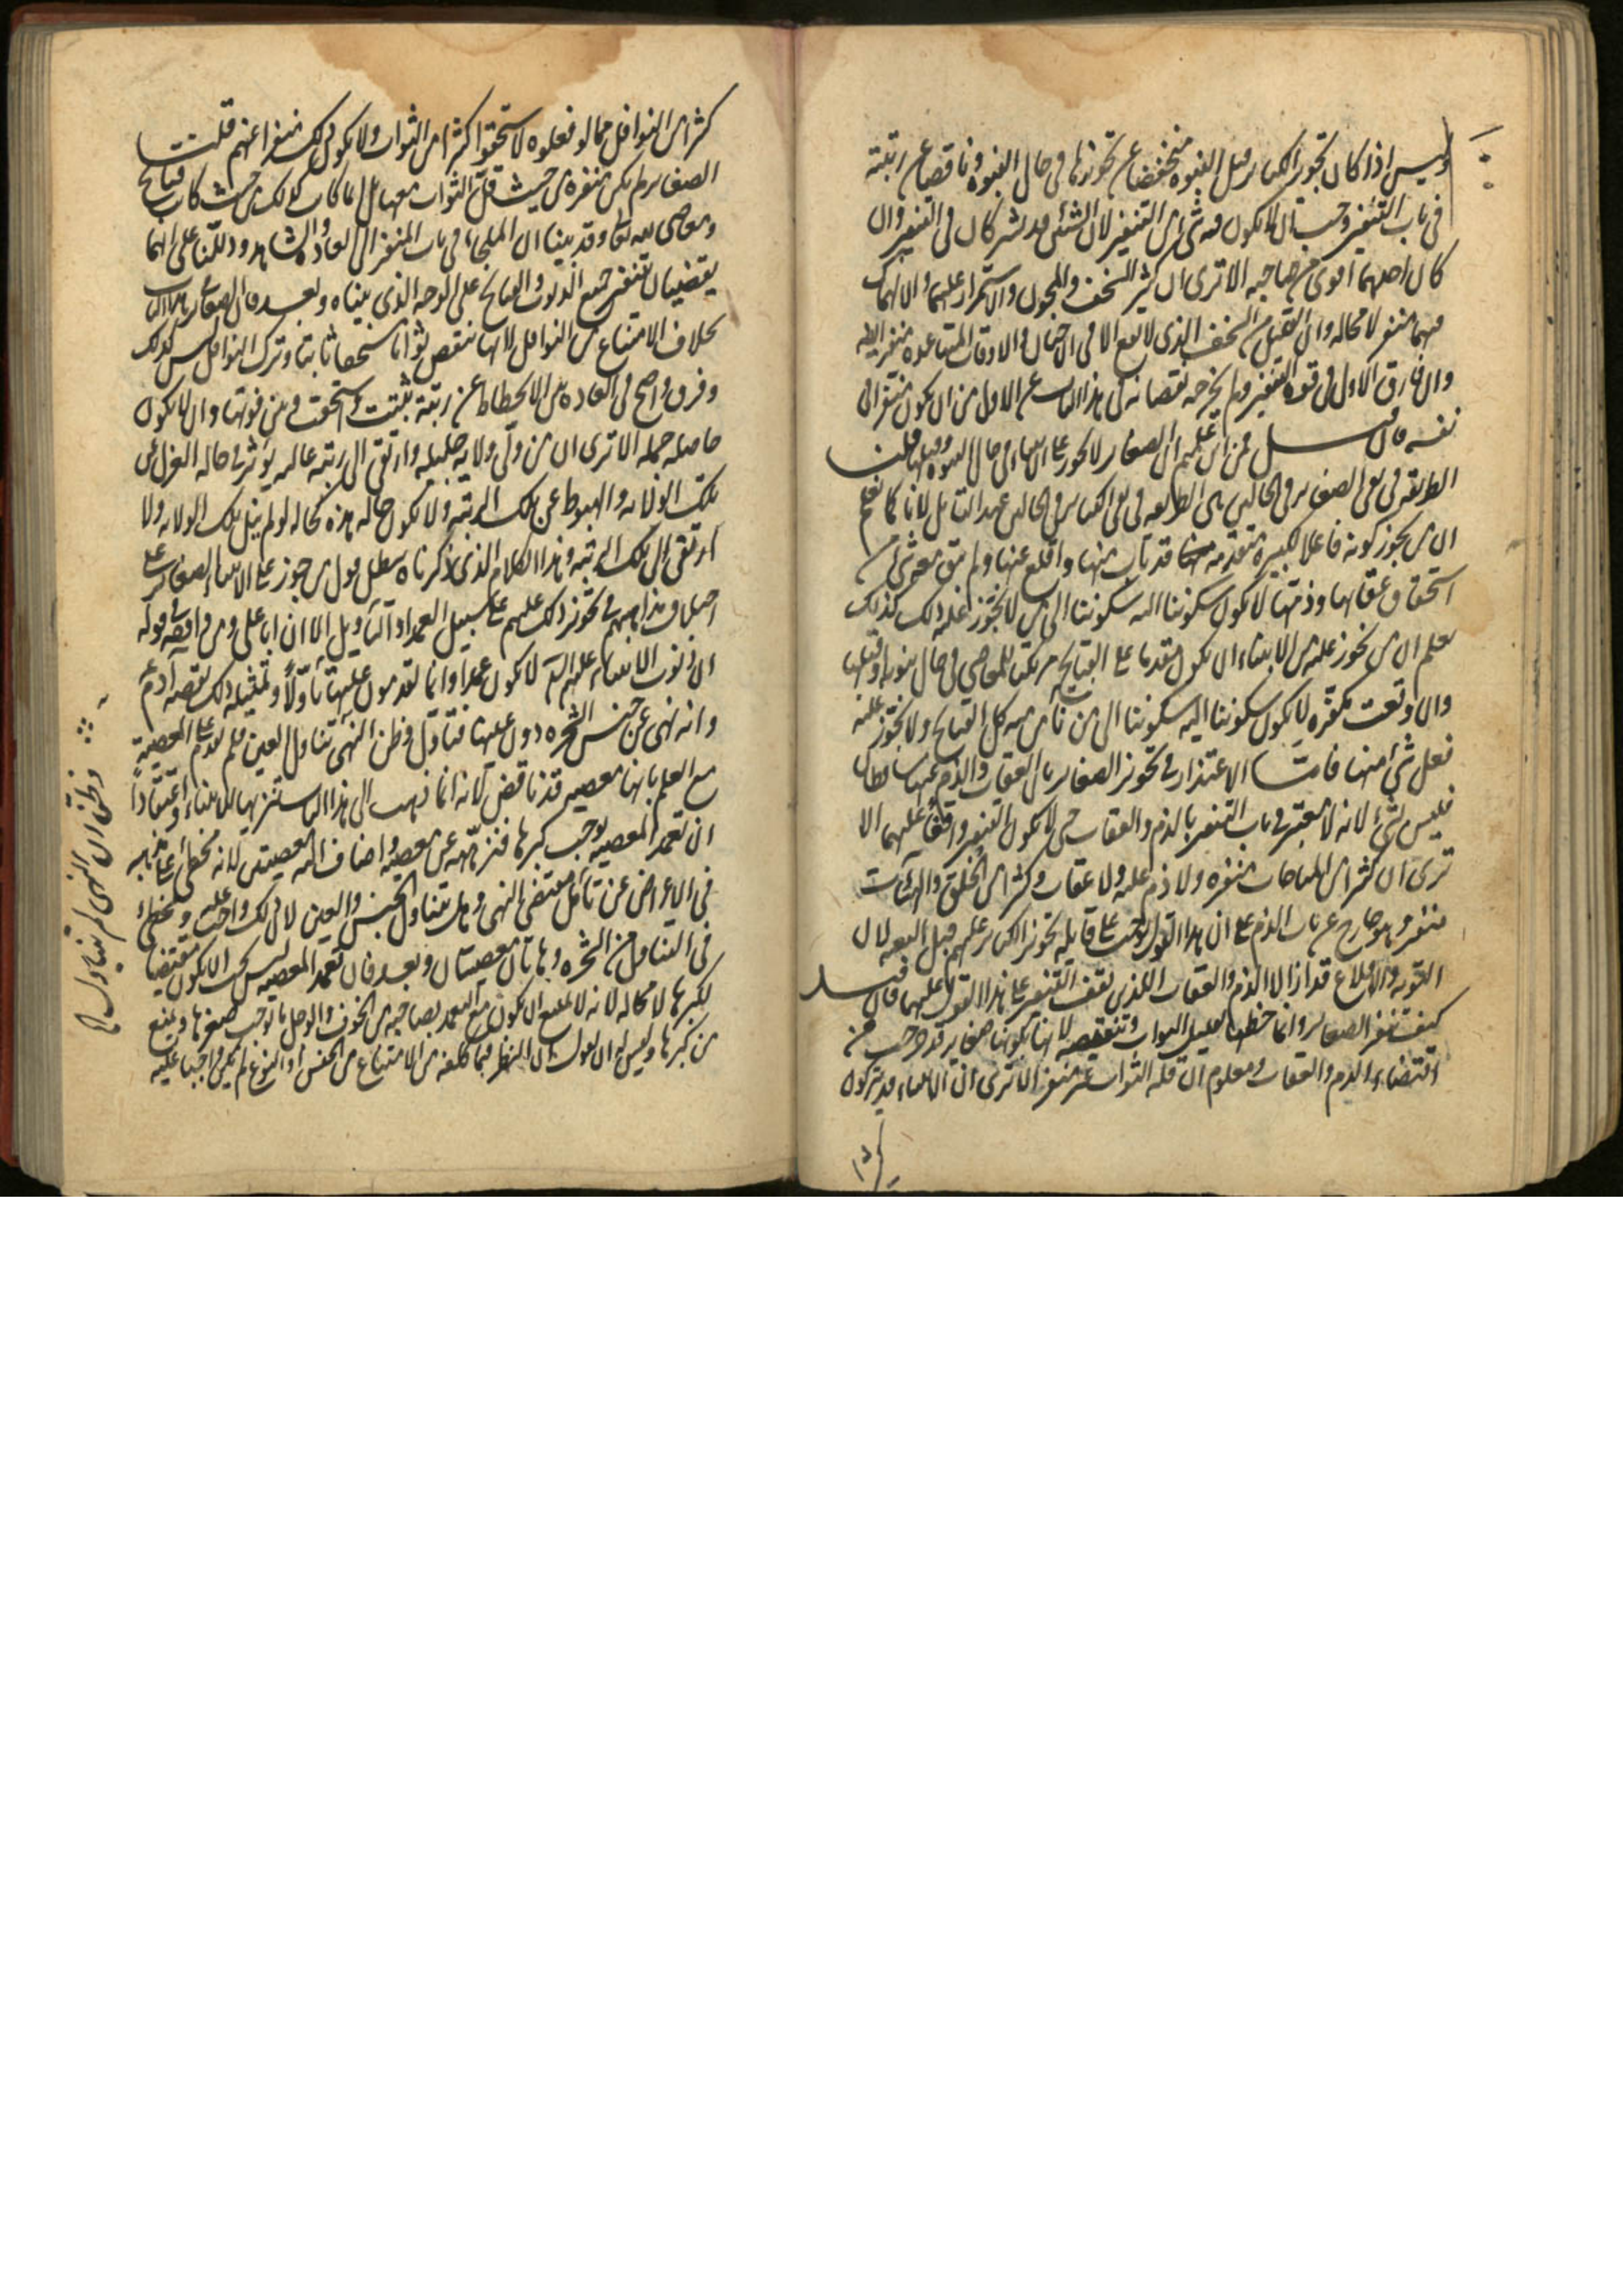 وليس اذا كان تجويز الكبائر قبل النبوة منخفضا عن تجويزها في حال النبوة وناقصا عن رتبته
في باب التنفير وجب ان لا يكون فيه شيء من التنفير لان الشيئين قد يشتركان في التنفير وان
كان احدهما اقوى من صاحبه الا ترى ان كثير السخف والمجون والاستمرار عليهما والانهماك
فيهما منفر لا محالة وان القليل من السخف الذي لا يقع الا في الاحيان والاوقات المتباعدة منفر ايضا
وان فارق الاول في قوة التنفير ولم يخرجه نقصانه في هذا الباب عن الاول من ان يكون منفرا في
نفسه فان قيل فمن اين علمتم ان الصغاير لا تجوز على الانبياء في حال النبوة وقبلها قلت
الطريقة في نفي الصغاير في الحالتين هي الطريقة في نفي الكباير في الحالتين عند التامل لانا كما نعلم
ان من يجوز كونه فاعلا لكبيرة متقدمة قد تاب منها واقلع عنها ولم يبق معه شيء من
استحقاق عقابها وذمها لا يكون سكوننا اليه سكوننا الى من لا يجوز عليه ذلك كذلك
نعلم ان من نجوز عليه من الانبياء ان يكون مقدما على القبايح مرتكبا للمعاصي في حال نبوته او قبلها
وان وقعت مكفرة لا يكون سكوننا اليه سكوننا الى من نامن منه كل القبايح ولا نجوز عليه
فعل شيء منها فاما الاعتذار في تجويز الصغاير بان العقاب والذم عنها ساقطان
فليس بشيء لانه لا معتبر في باب التنفير بالذم والعقاب حتى لا يكون التنفير واقفا عليهما الا
ترى ان كثيرا من المباحات منفرة ولا ذم عليه ولا عقاب وكثيرا من الخلق والهيئات
منفر وهو خارج عن باب الذم على ان هذا القول يوجب على قايله تجويز الكباير عليهم قبل البعثة لان
التوبة والاقلاع قد ازالا الذم والعقاب اللذين يقف التنفير على هذا القول عليهما فان قيل
كيف تنفر الصغاير وانما حظها تقليل الثواب وتنقيصه لانها بكونها صغاير قد خرجت من
اقتضاء الذم والعقاب ومعلوم ان قلة الثواب غير منفر الا ترى ان الانبياء قد يتركون
كثيرا من النوافل مما لو فعلوه لاستحقوا كثيرا من الثواب ولا يكون ذلك منفرا عنهم قلت
الصغاير لم تكن منفرة من حيث قلة الثواب معها بل انما كانت كذلك من حيث كانت قبايح
ومعاصي لله تعالى وقد بينا ان الملجأ في باب المنفر الى العادة والشاهد ودللنا على انهما
يقضيان تنفير جميع الذنوب والقبايح على الوجه الذي بيناه وبعد فان الصغاير في هذا الباب
بخلاف الامتناع من النوافل لانها تنقص ثوابا مستحقا ثابتا وترك النوافل ليس كذلك
وفرق واضح في العادة بين الانحطاط عن رتبة ثبتت واستحقت وبين فوتها وان لا يكون
حاصله جملة الا ترى ان من ولي ولاية جليلة وارتقى الى رتبة عالية يؤثر في حاله العزل عن
تلك الولاية والهبوط عن تلك الرتبة ولا تكون حاله هذه كحاله لو لم ينل تلك الولاية ولا
ارتقى الى تلك الرتبة وهذا الكلام الذي ذكرناه يبطل قول من جوز على الانبياء الصغاير على
اختلاف مذاهبهم في تجويز ذلك عليهم على سبيل العمد او التاويل الا ان ابا علي ومن وافقه في قوله
ان ذنوب الانبياء عليهم السلام لا تكون عمدا وانما يقدمون عليها تاولا وتمثيله ذلك بقصة آدم ع
وانه نهي عن جنس الشجرة دون عينها فتاول وظن النهي تناول العين فلم يقدم على المعصية
مع العلم بانها معصية قد ناقض لانه انما ذهب الى هذا الباب تنزيها للانبياء واعتقادا
ان تعمد المعصية يوجب كبرها فنزهه عن معصية واضاف اليه معصيتين لانه مخطئ على مذهبه
في الاعراض عن تامل مقتضى النهي وهل يتناول الجنس والعين لان ذلك واجب عليه ومخطئ
في التناول من الشجرة وهاتان معصيتان وبعد فان تعمد المعصية ليس يجب ان يكون مقتضيا
لكبرها لا محالة لانه لا يمتنع ان يكون مع التعمد لصاحبه من الخوف والوجل ما يوجب صغرها ويمنع
من كبرها وليس له ان يقول ان النظر فيما كلفه من الامتناع من الجنس او النوع لم يكن واجبا عليه
وظن ان النهي لم يتناول